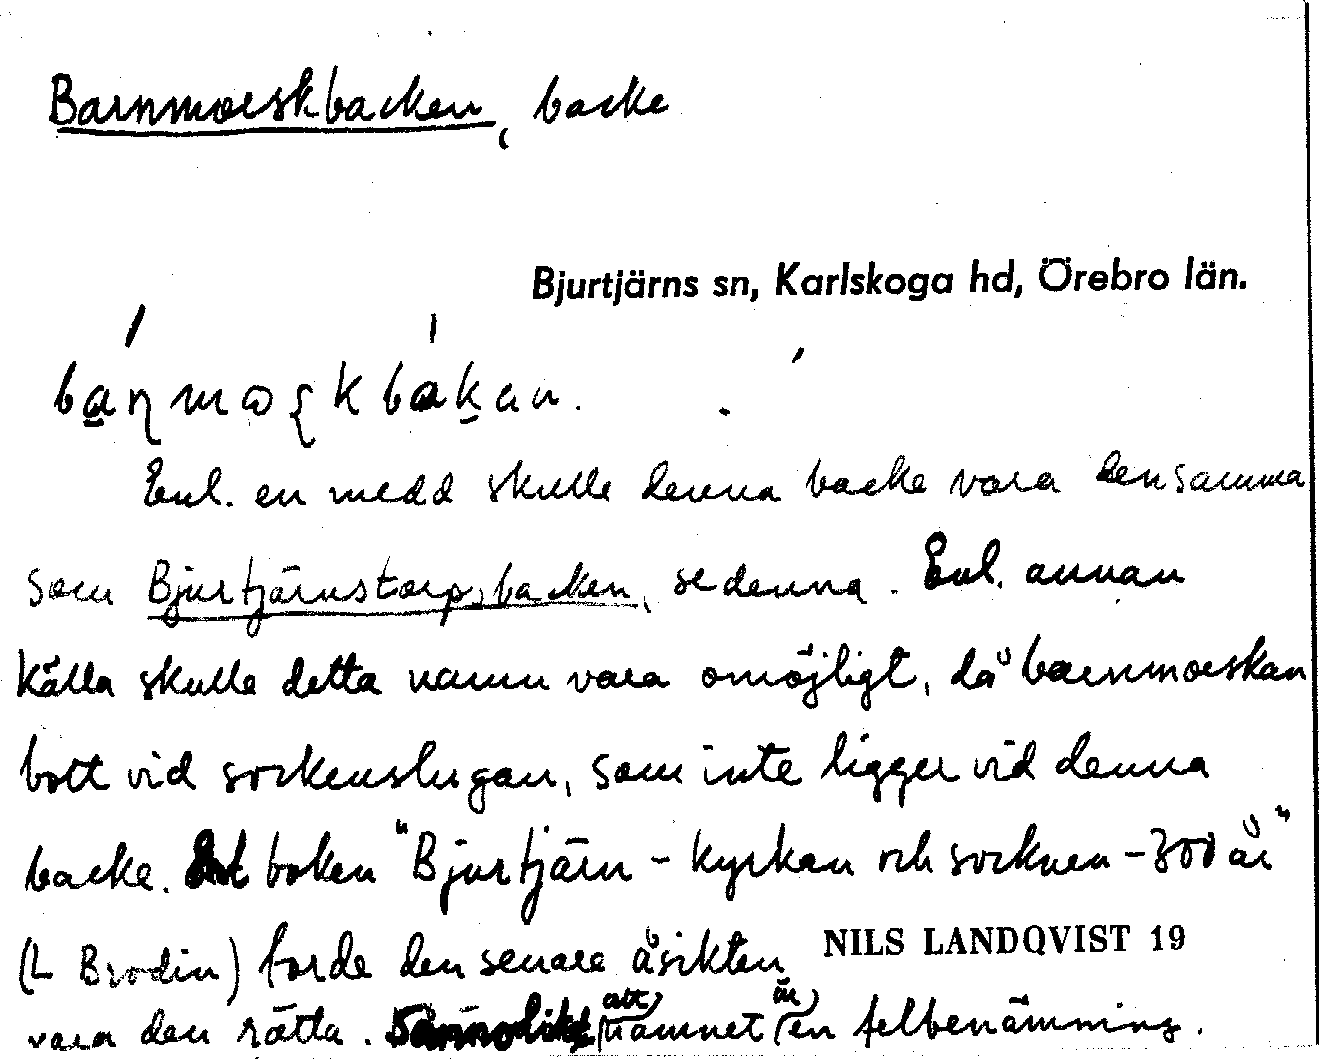 Barnmorskbacken, backe
Bjurtjärns sn, Karlskoga hd, Örebro län.
Enl. en medd skulle denna backe vara densamma
som Bjurtjärnstorpsbacken, se denna. Enl. annan
källa skulle detta namn vara omöjligt, då barnmorskan
bott vid sockenstugan, som inte ligger vid denna
backe. Enl boken "Bjurtjärn - kyrkan och socknen - 300 år"
(L Brodin) borde den senare åsikten
NILS LANDQVIST 19
vara den rätta. Sannolikt att namnet är en felbenämning.